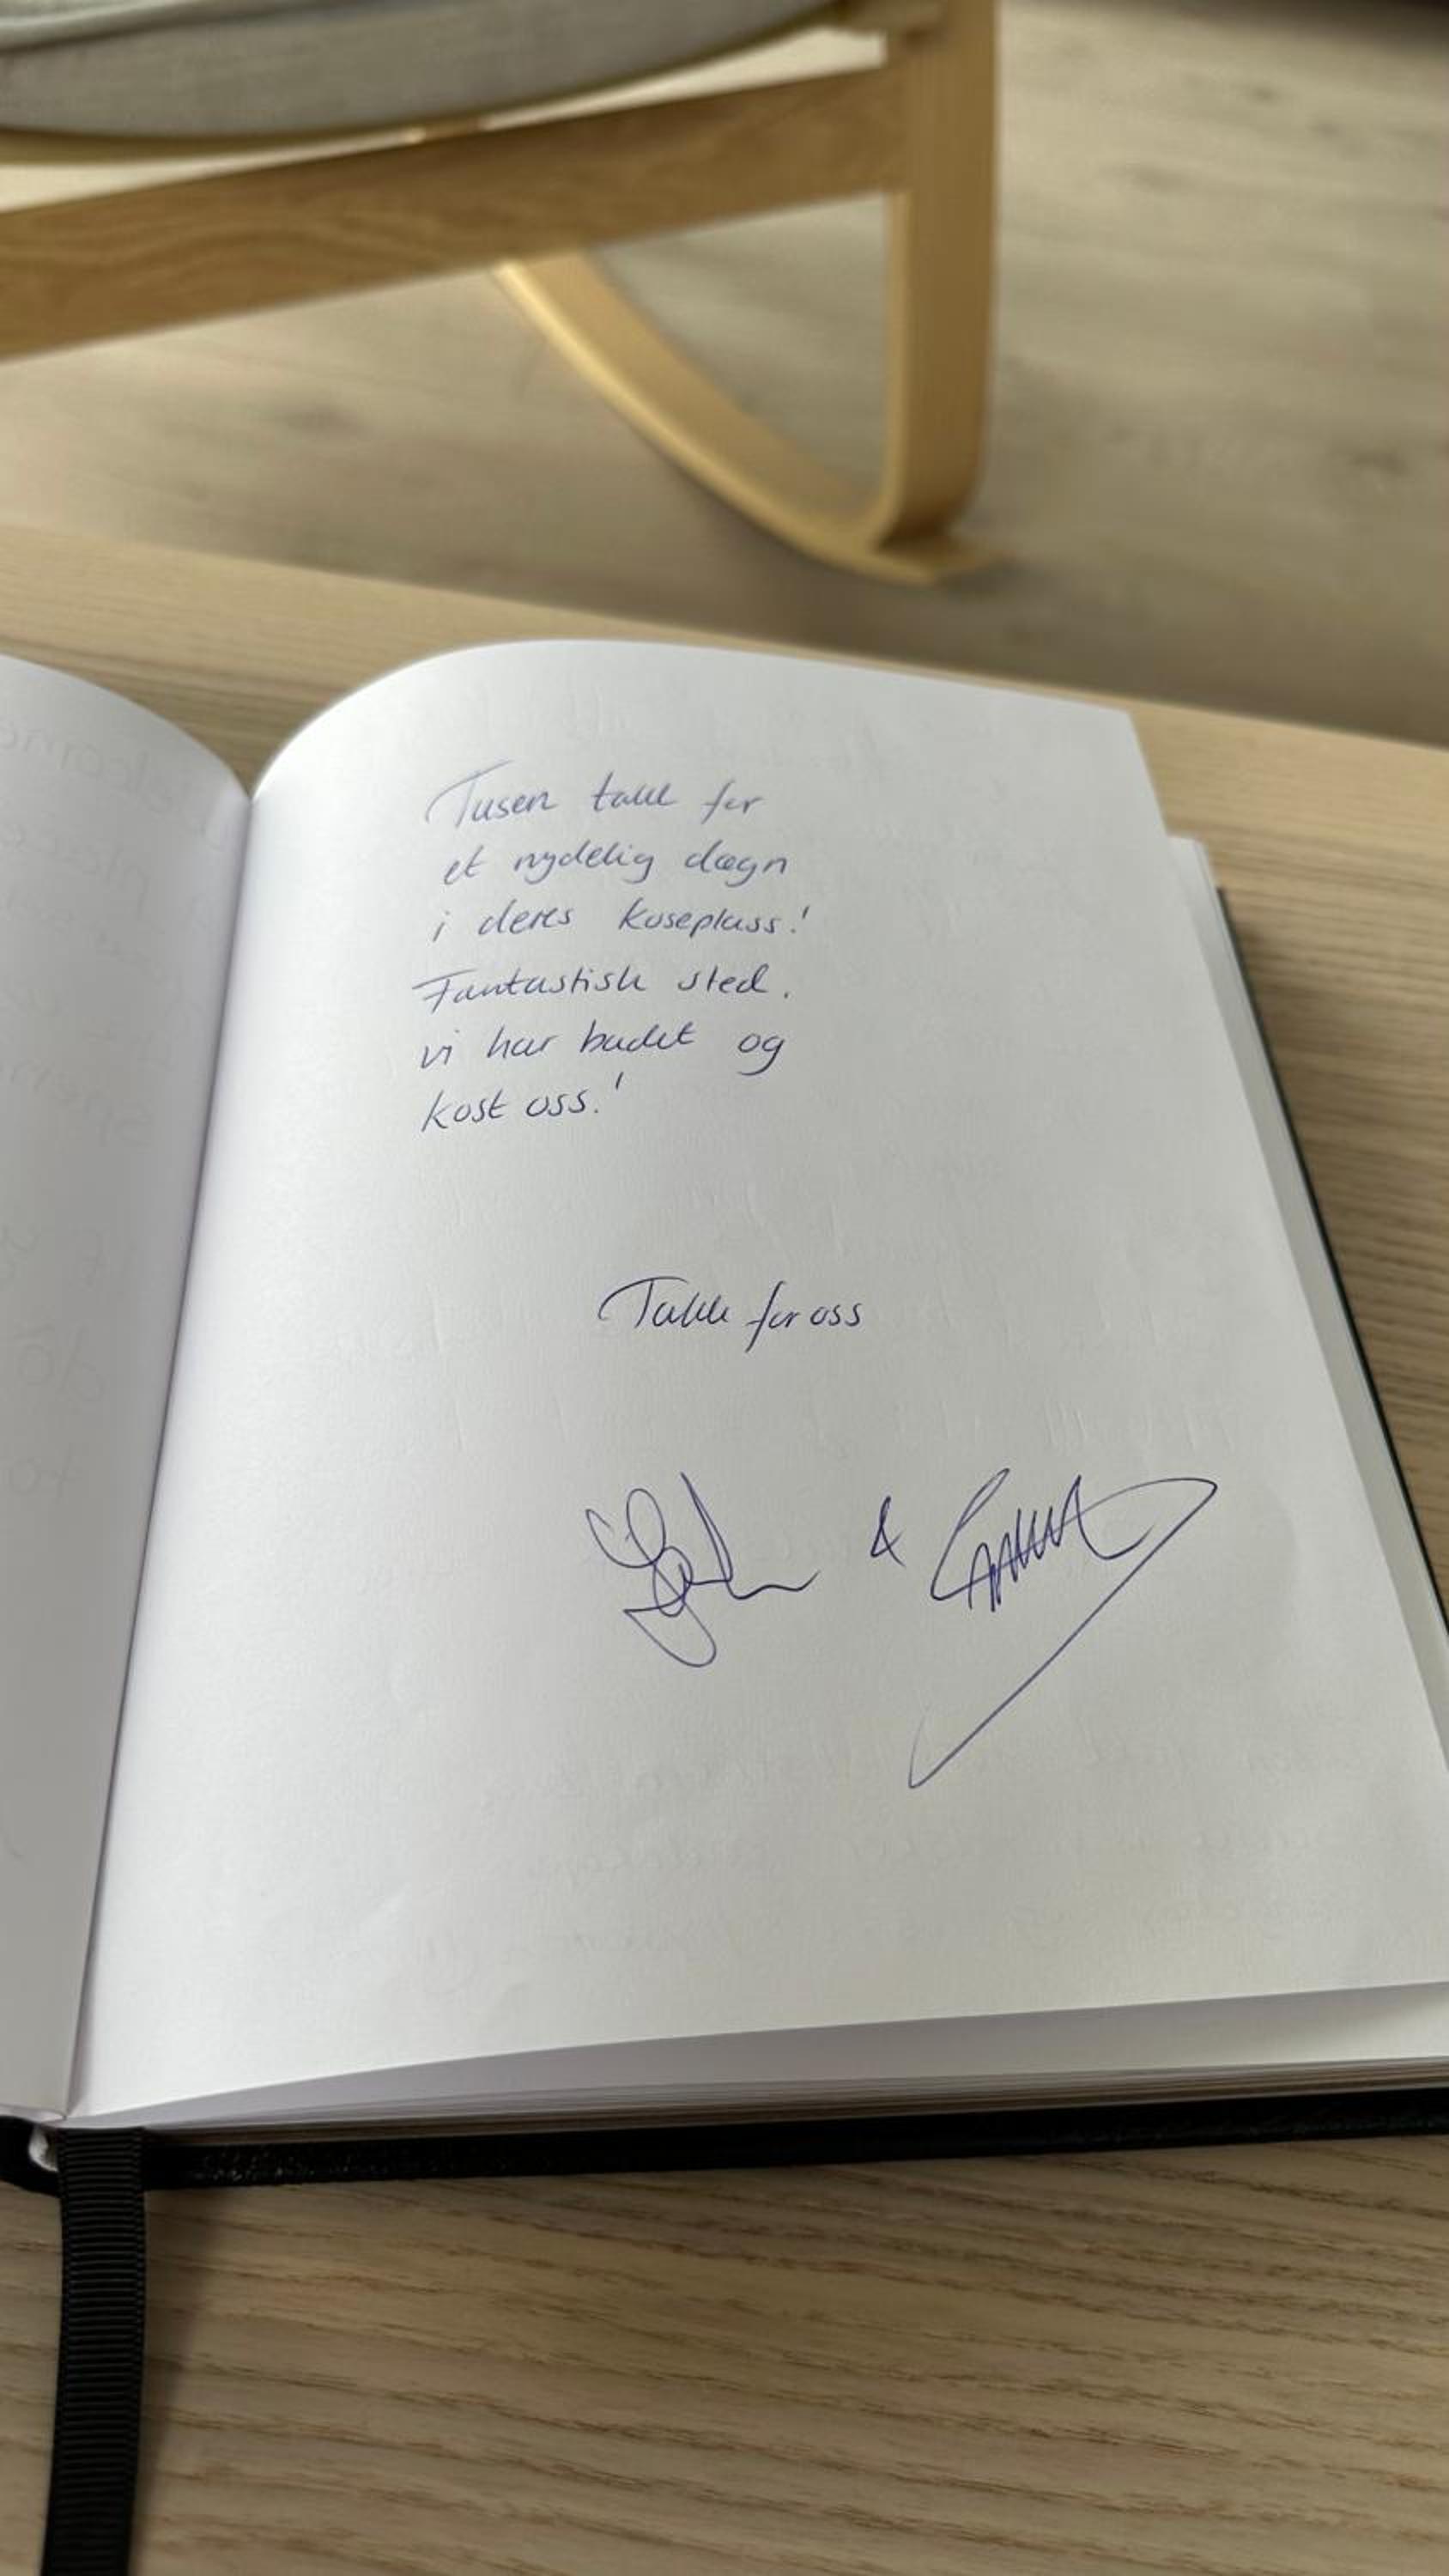 Tusen takk for
et nydelig døgn
i deres koseplass!
Fantastisk sted.
vi har badet og
kost oss!
Takk for oss
&